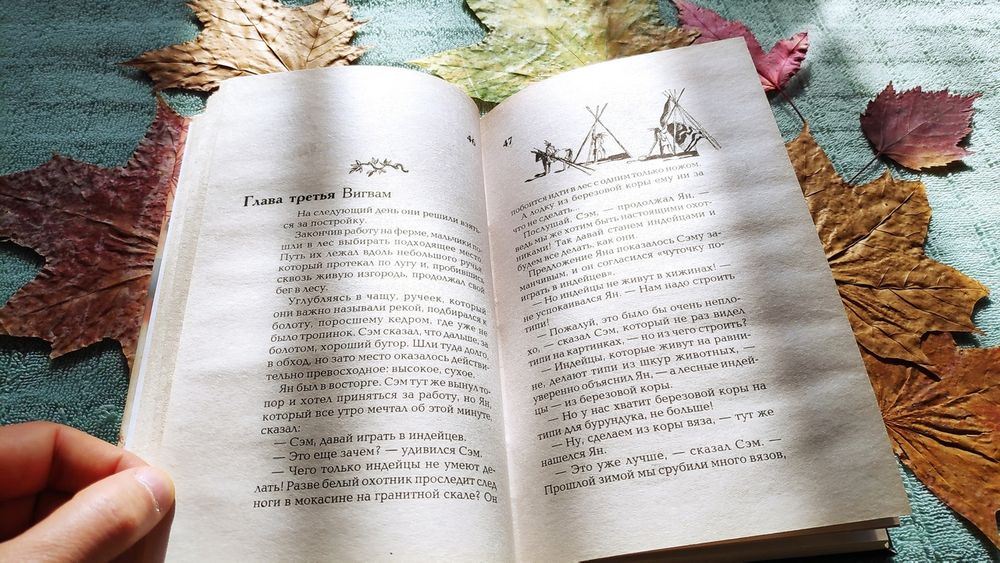 46
Глава третья Вигвам
На следующий день они решили взять-
ся за постройку.
Закончив работу на ферме, мальчики по-
шли в лес выбирать подходящее место.
Путь их лежал вдоль небольшого ручья,
который протекал по лугу и, пробившись
сквозь живую изгородь, продолжал свой
бег в лесу.
Углубляясь в чащу, ручеек, который
они важно называли рекой, подбирался к
болоту, поросшему кедром, где уже не
было тропинок. Сэм сказал, что дальше, за
болотом, хороший бугор. Шли туда долго,
в обход, но зато место оказалось действи-
тельно превосходное: высокое, сухое.
Ян был в восторге. Сэм тут же вынул то-
пор и хотел приняться за работу, но Ян,
который все утро мечтал об этой минуте,
сказал:
— Сэм, давай играть в индейцев.
— Это еще зачем? — удивился Сэм.
— Чего только индейцы не умеют де-
лать! Разве белый охотник проследит след
ноги в мокасине на гранитной скале? Он
47
побоится идти в лес с одним только ножом.
А лодку из березовой коры ему ни за
что не сделать.
Послушай, Сэм, — продолжал Ян, —
ведь мы же хотим быть настоящими охот-
никами! Так давай станем индейцами и
будем все делать, как они.
Предложение Яна показалось Сэму за-
манчивым, и он согласился «чуточку по-
играть в индейцев».
— Но индейцы не живут в хижинах! —
не успокаивался Ян. — Нам надо строить
типи!
— Пожалуй, это было бы очень непло-
хо, — сказал Сэм, который не раз видел
типи на картинках, — но из чего строить?
— Индейцы, которые живут на равни-
не, делают типи из шкур животных, —
уверенно объяснил Ян, — а лесные индей-
цы — из березовой коры.
— Но у нас хватит березовой коры на
типи для бурундука, не больше!
— Ну, сделаем из коры вяза, — тут же
нашелся Ян.
— Это уже лучше, — сказал Сэм. —
Прошлой зимой мы срубили много вязов,